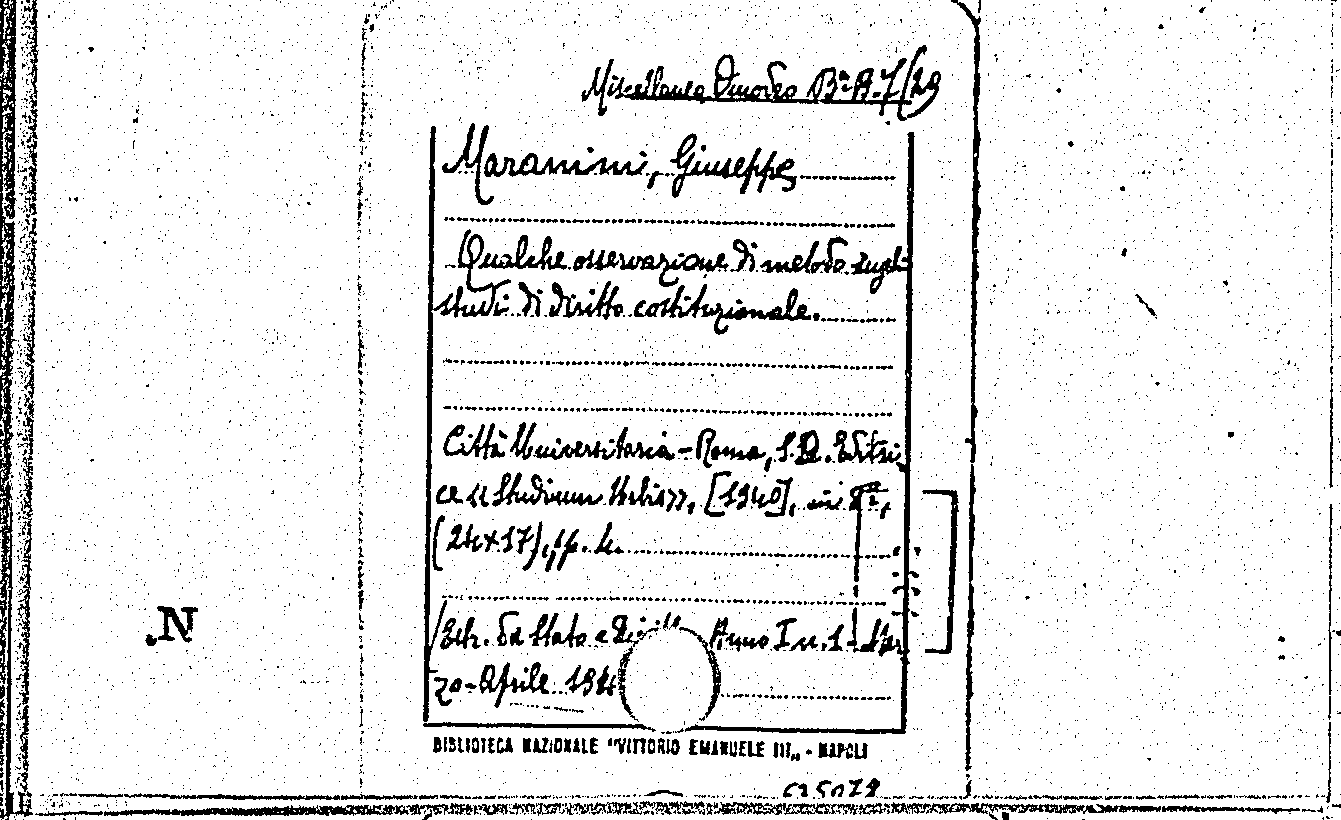 Miscellanea Dinodeo Bª B-7/29
Maranini, Giuseppe
Qualche osservazione di metodo sugli
studi di diritto costituzionale.
Città Universitaria - Roma, S.A. Editri
ce «Studium Urbis», [1940], in 8º,
(24×17), pp. 4.
/Estr. da Stato e Diritto Anno I n. 1 - Mar
zo-Aprile 194
BIBLIOTECA NAZIONALE "VITTORIO EMANUELE III„ - NAPOLI
N.